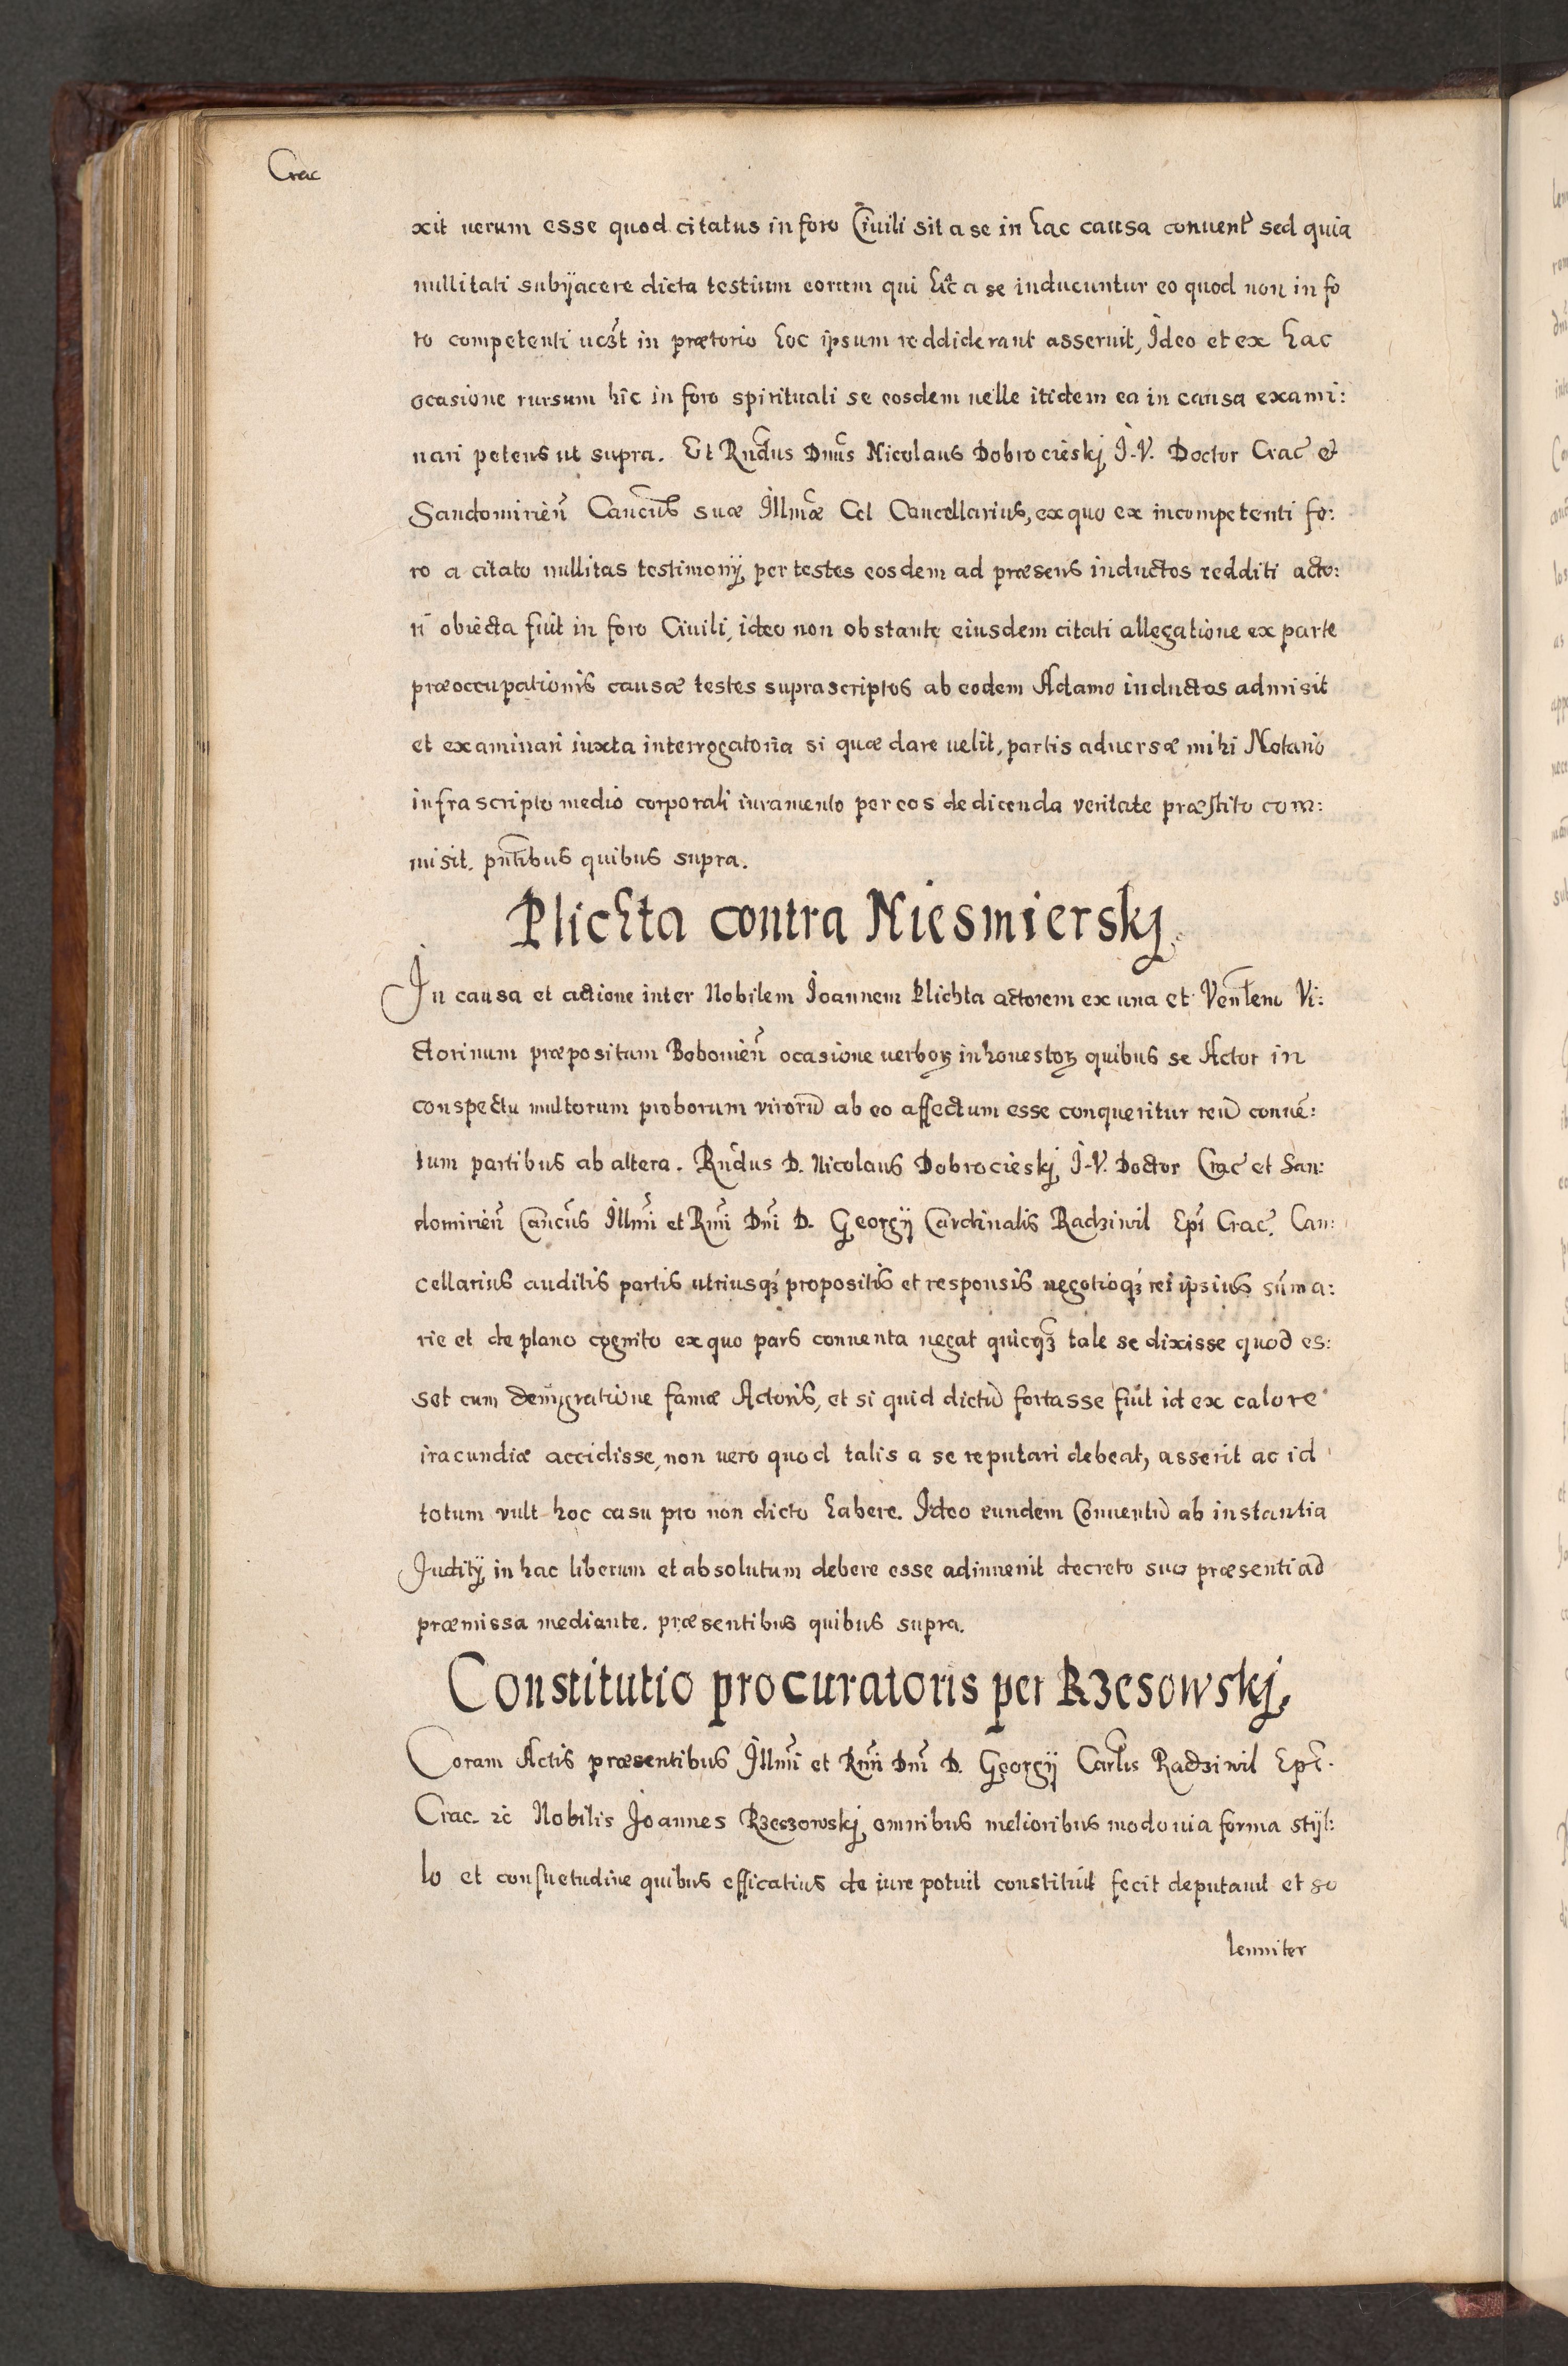 Crac
xit uerum esse quod citatus in foro Ciuili sit a se in hac causa conuent9 sed quia
nullitati subijacere dicta testium eorum qui hîc a se inducuntur eo quod non in fo
ro competenti in prætorio hoc ipsum reddiderant asseruit, Ideo et ex hac
ocasione rursum hîc in foro spirituali se eosdem uelle itidem ea in causa exami:
nari petens ut supra. Et Rndus Dnus Nicolaus Dobrocieskj I.V. Doctor Crac et
Sandomirien̄ Cancus suæ Illmæ Cel Cancellarius, ex quo ex incompetenti fo:
ro a citato nullitas testimonij per testes eosdem ad præsens inductos redditi acto:
ri obiecta fuit in foro Ciuili, ideo non obstante eiusdem citati allegatione ex parte
præoccupationis causæ testes suprascriptos ab eodem Adamo inductos admisit
et examinari iuxta interrogatoria si quæ dare uelit, partis aduersæ mihi Notario
infrascripto medio corporali iuramento per eos de dicenda veritate præstito com:
misit. pntibus quibus supra.
Plichta contra Niesmierskj.
In causa et actione inter Nobilem Ioannem Plichta actorem ex una et Venlem Vi:
ctorinum præpositum Bobonien̄ ocasione uerboꝝ inhonestoꝝ quibus se Actor in
conspectu multorum proborum virorū ab eo affectum esse conqueritur reū conuē:
tum partibus ab altera. Rndus D. Nicolaus Dobrocieskj I.V. Doctor Crac et San:
domirien̄ Cancus Illmi et Rmi Dni D. Georgij Cardinalis Radziwil Epi Crac. Can:
cellarius auditis partis utriusqꝫ propositis et responsis negotioqꝫ rei ipsius sūma:
rie et de plano cognito ex quo pars conuenta negat quicqꝫ tale se dixisse quod es:
set cum denigratione famæ Actoris, et si quid dictū fortasse fuit id ex calore
iracundiæ accidisse, non uero quod talis a se reputari debeat, asserit ac id
totum vult hoc casu pro non dicto habere. Ideo eundem Conuentū ab instantia
Juditij in hac liberum et absolutum debere esse adinuenit decreto suo præsenti ad
præmissa mediante. præsentibus quibus supra.
Constitutio procuratoris per Rzesowskj.
Coram Actis præsentibus Illmi et Rmi Dni D. Georgij Carlis Radziwil Epi.
Crac. ꝛc Nobilis Joannes Rzeszowskj omnibus melioribus modo uia forma stijl:
lo et consuetudine quibus efficatius de iure potuit constituit fecit deputauit et so
lenniter